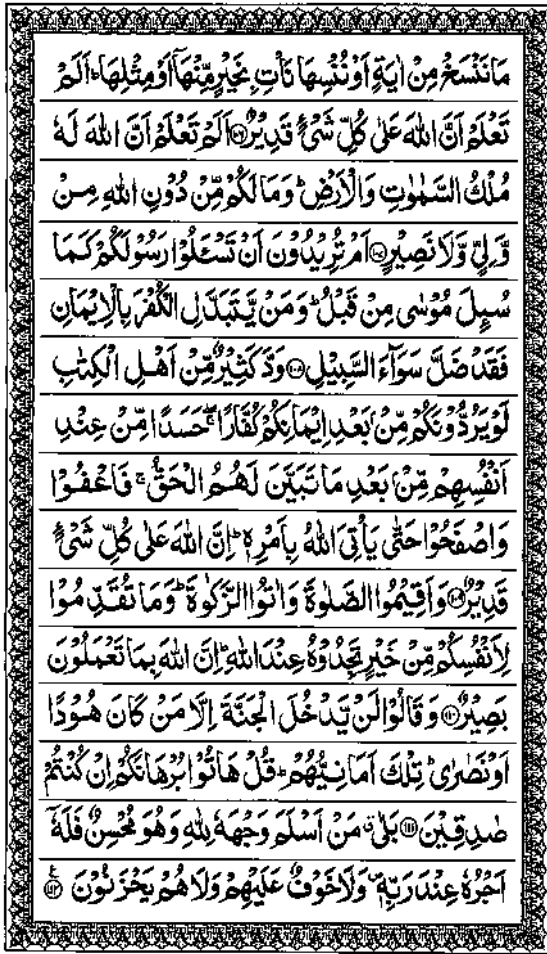 مَا نَنْسَخْ مِنْ اٰيَةٍ اَوْ نُنْسِهَا نَاْتِ بِخَيْرٍ مِّنْهَاۤ اَوْ مِثْلِهَا ؕ اَلَمْ
تَعْلَمْ اَنَّ اللّٰهَ عَلٰى كُلِّ شَیْءٍ قَدِيْرٌ ۝۱۰۶ اَلَمْ تَعْلَمْ اَنَّ اللّٰهَ لَهٗ
مُلْكُ السَّمٰوٰتِ وَالْاَرْضِ ؕ وَمَا لَكُمْ مِّنْ دُوْنِ اللّٰهِ مِنْ
وَّلِیٍّ وَّلَا نَصِيْرٍ ۝۱۰۷ اَمْ تُرِيْدُوْنَ اَنْ تَسْـَٔلُوْا رَسُوْلَكُمْ كَمَا
سُىِٕلَ مُوْسٰى مِنْ قَبْلُ ؕ وَمَنْ يَّتَبَدَّلِ الْكُفْرَ بِالْاِيْمَانِ
فَقَدْ ضَلَّ سَوَآءَ السَّبِيْلِ ۝۱۰۸ وَدَّ كَثِيْرٌ مِّنْ اَهْلِ الْكِتٰبِ
لَوْ يَرُدُّوْنَكُمْ مِّنْۢ بَعْدِ اِيْمَانِكُمْ كُفَّارًا ۖۚ حَسَدًا مِّنْ عِنْدِ
اَنْفُسِهِمْ مِّنْۢ بَعْدِ مَا تَبَيَّنَ لَهُمُ الْحَقُّ ۚ فَاعْفُوْا
وَاصْفَحُوْا حَتّٰى يَاْتِیَ اللّٰهُ بِاَمْرِهٖ ؕ اِنَّ اللّٰهَ عَلٰى كُلِّ شَیْءٍ
قَدِيْرٌ ۝۱۰۹ وَاَقِيْمُوا الصَّلٰوةَ وَاٰتُوا الزَّكٰوةَ ؕ وَمَا تُقَدِّمُوْا
لِاَنْفُسِكُمْ مِّنْ خَيْرٍ تَجِدُوْهُ عِنْدَ اللّٰهِ ؕ اِنَّ اللّٰهَ بِمَا تَعْمَلُوْنَ
بَصِيْرٌ ۝۱۱۰ وَقَالُوْا لَنْ يَّدْخُلَ الْجَنَّةَ اِلَّا مَنْ كَانَ هُوْدًا
اَوْ نَصٰرٰى ؕ تِلْكَ اَمَانِيُّهُمْ ؕ قُلْ هَاتُوْا بُرْهَانَكُمْ اِنْ كُنْتُمْ
صٰدِقِيْنَ ۝۱۱۱ بَلٰى ۗ مَنْ اَسْلَمَ وَجْهَهٗ لِلّٰهِ وَهُوَ مُحْسِنٌ فَلَهٗۤ
اَجْرُهٗ عِنْدَ رَبِّهٖ ۪ وَلَا خَوْفٌ عَلَيْهِمْ وَلَا هُمْ يَحْزَنُوْنَ ۝۱۱۲ ع